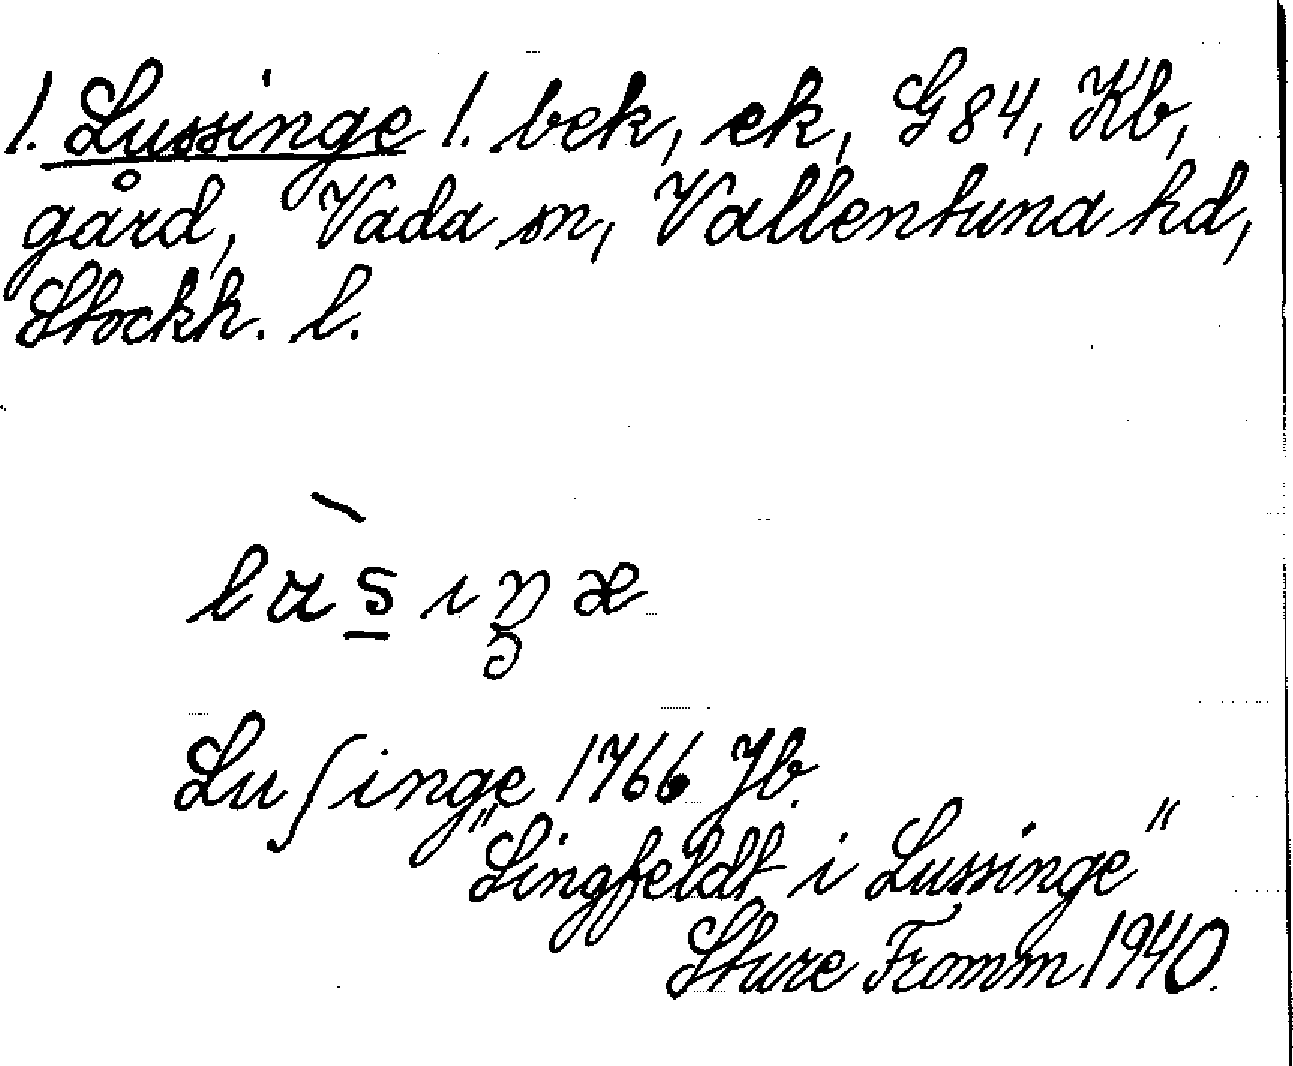 1. Lussinge 1. bek, ek, G84, Kb,
gård, Vada sn, Vallentuna hd,
Stockh. l.
lùs̲ıŋæ
Luſinge 1766 Jb.
"Lingfeldt i Lussinge"
Sture Fromm 1940.